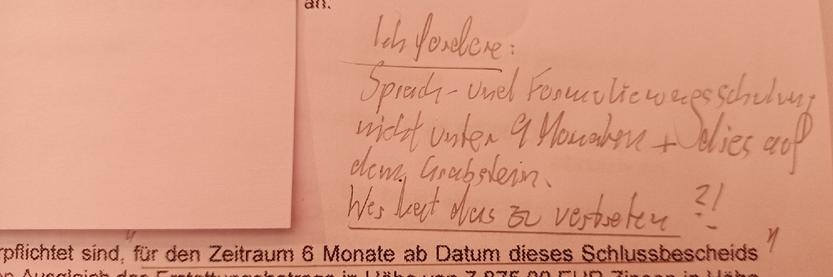 an.
Ich fordere:
Sprach- und Formulierungsschulung
nicht unter 9 Monaten + dies auf
dem Grabstein.
Wer hat das zu vertreten ?!
rpflichtet sind, für den Zeitraum 6 Monate ab Datum dieses Schlussbescheids
Ausgleich der Erstattungsbetrags in Höhe von 7.875,00 EUR Zinsen in Höhe